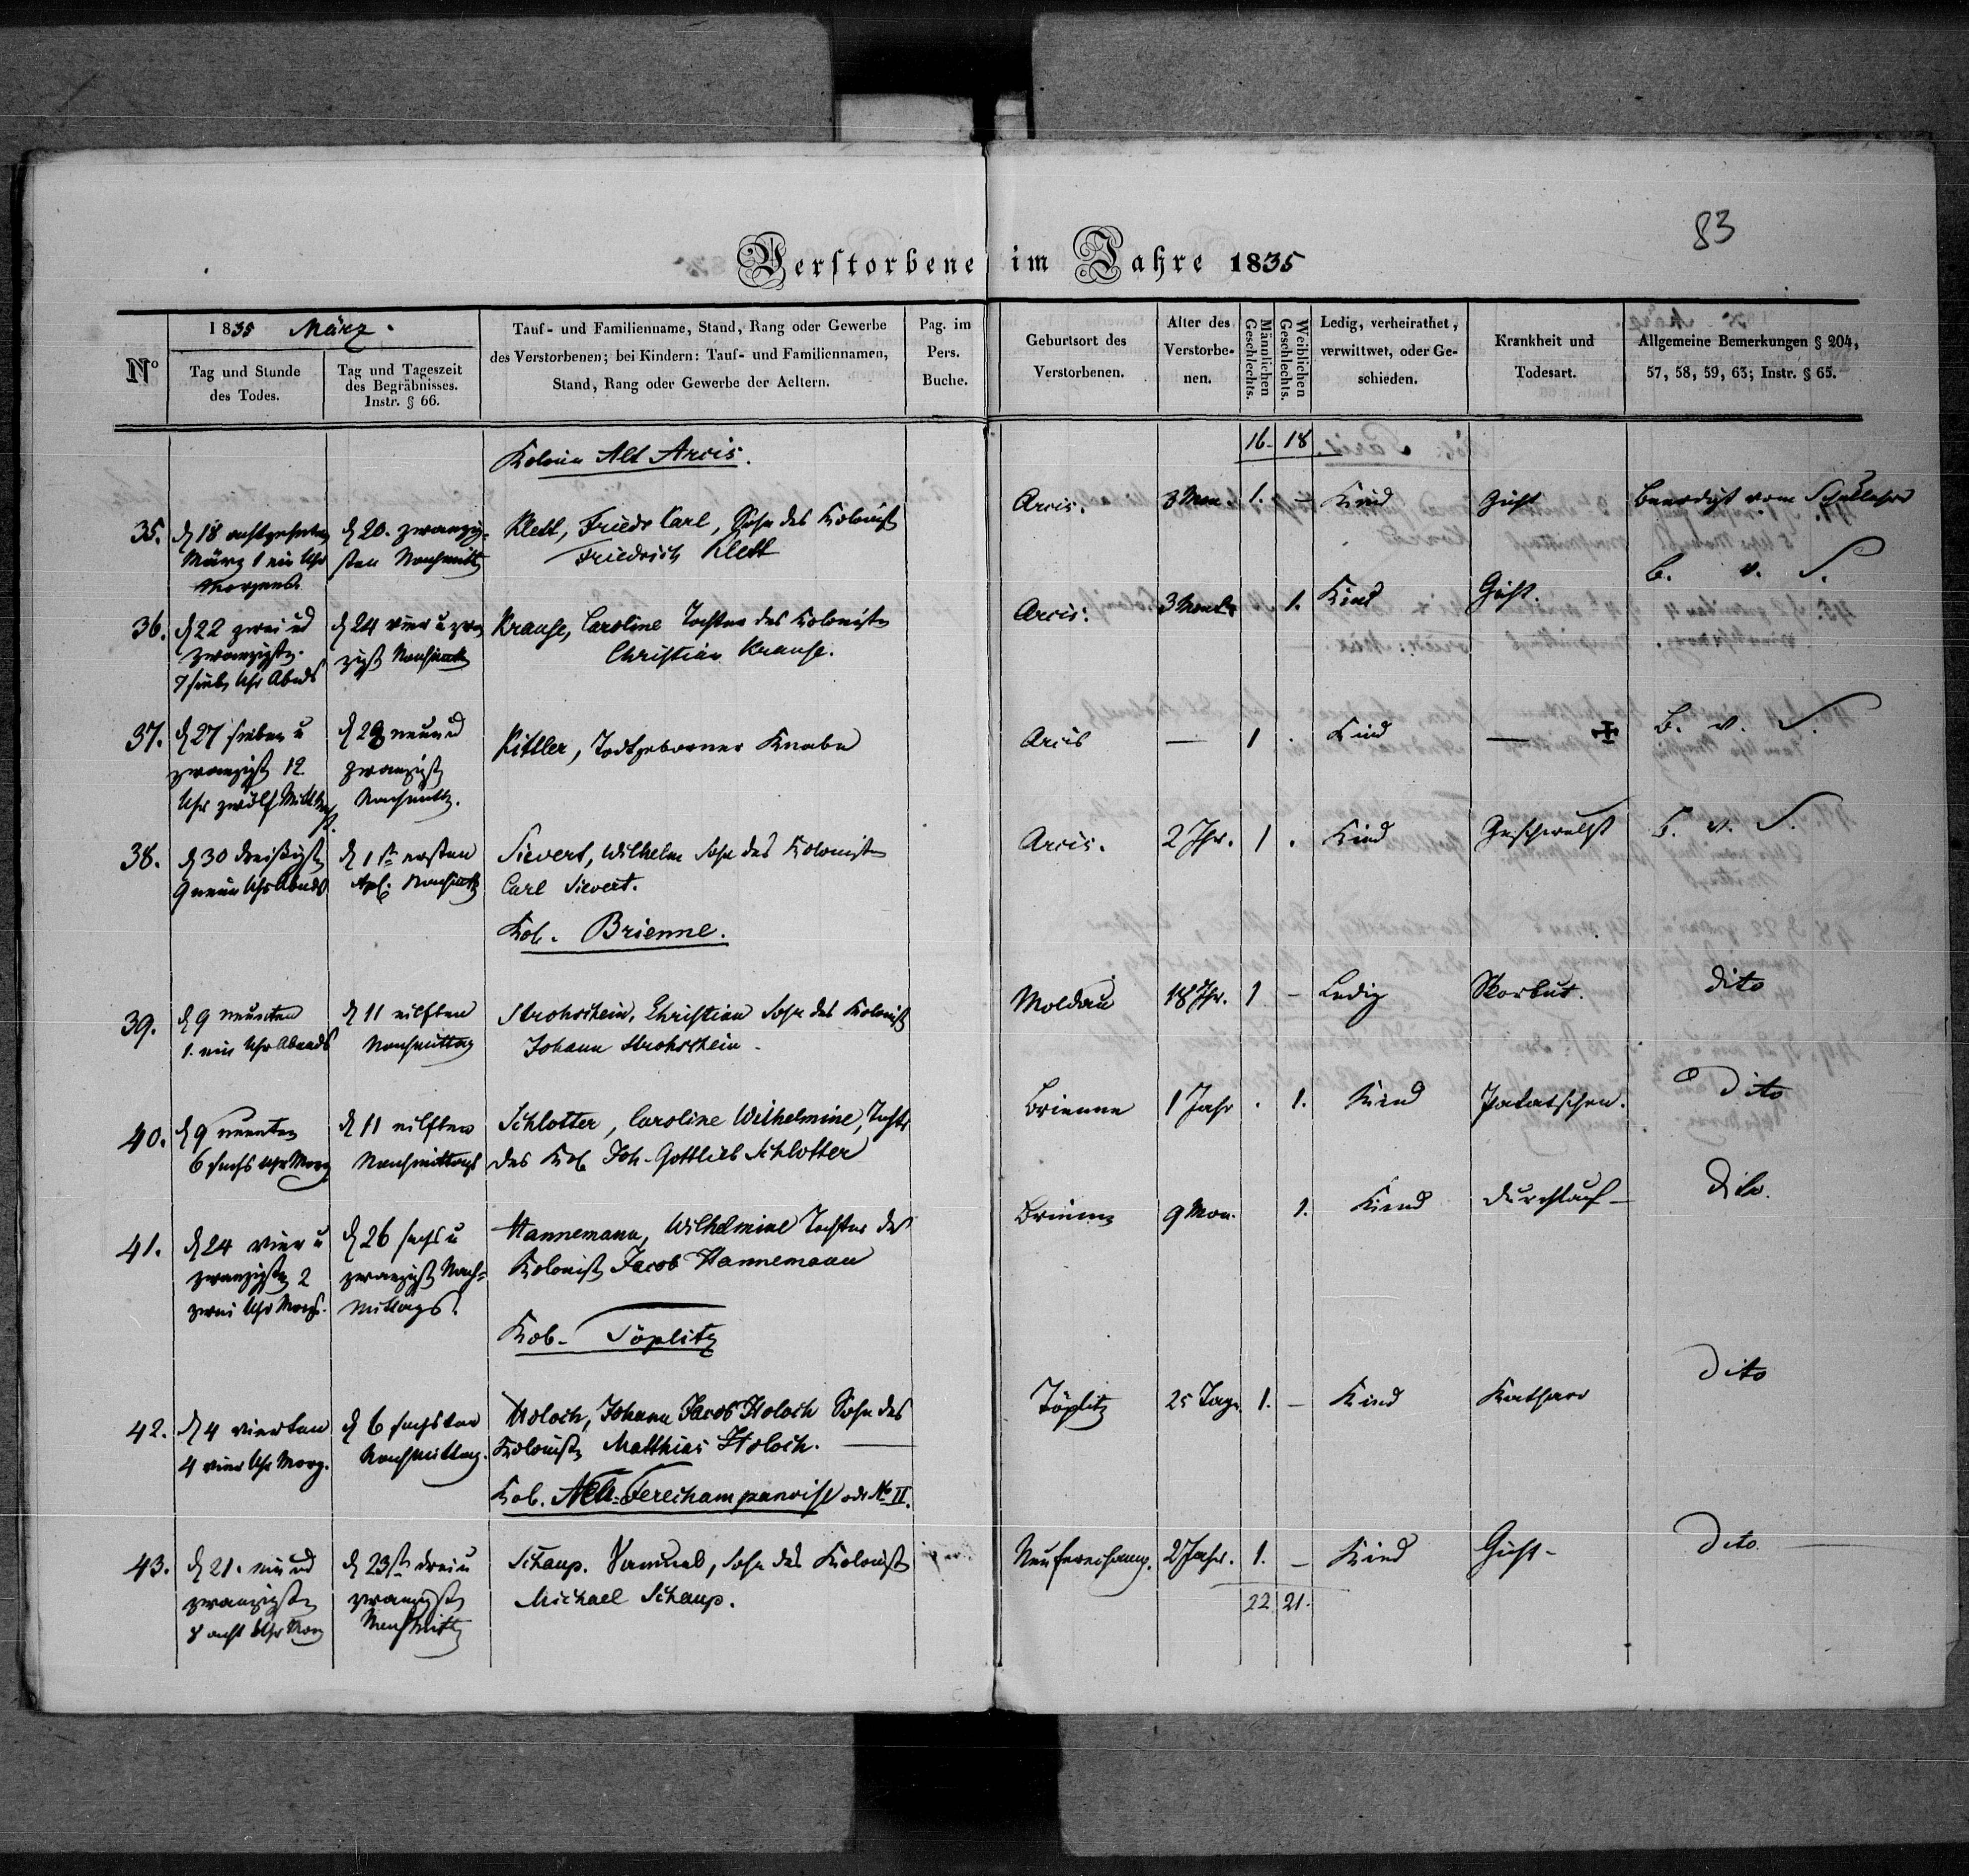 83
Verstorbene im Jahre 1835
No
1835 März.
Tag und Stunde
des Todes.
Tag und Tageszeit
des Begräbnisses.
Instr. § 66.
Tauf- und Familienname, Stand, Rang oder Gewerbe
des Verstorbenen; bei Kindern: Tauf- und Familiennamen,
Stand, Rang oder Gewerbe der Aeltern.
Pag. im
Pers.
Buche.
Geburtsort des
Verstorbenen.
Alter des
Verstorbe-
nen.
Männlichen
Geschlechts.
Weiblichen
Geschlechts.
Ledig, verheirathet,
verwittwet, oder Ge-
schieden.
Krankheit und
Todesart.
Allgemeine Bemerkungen § 204,
57, 58, 59, 63; Instr. § 65.
16. 18
Kolonie Alt Arcis.
35. d 18 achtzehnten
März 1 ein Uhr
Morgends
d 20. zwanzig-
sten Nachmitt
Klett, Friedr Carl, Sohn des Kolonist
Friedrich Klett
Arcis. 3 Mon. 1. – Kind Gicht Beerdigt vom Schullehrer
36. d 22 zwei ud
zwanzigste.
7 sieb Uhr Abends
d 24 vier u zwa
zigst Nachmitt
Krause, Caroline Tochter des Koloniste
Christian Krause.
Arcis. 3 Monate . 1. Kind Gicht. B. v. S.
37. d 27 sieben u
zwanzigst 12
Uhr zwölf Mitt
d 29 neun ud
zwanzigst
Nachmittg.
Rittler, Todtgeborner Knabe
Arcis — 1 . Kind — B. v. S.
38. d 30 dreißigst
9 neun Uhr Abends
d 1st ersten
Apl. Nachmitt
Sievert, Wilhelm Sohn des Koloniste
Carl Sievert.
Arcis. 2 Jhr. 1 . Kind Geschwulst B. v. S.
Kol. Brienne.
39. d 9 neunten
1. ein Uhr Abends
d 11 eilften
Nachmittag
Strohschein, Christian Sohn des Kolonist
Johann Strohschein.
Moldau 18 Jhr. 1 – Ledig Skorbut. dito
40. d 9 neunten
6 sechs Uhr Morg
d 11 eilften
Nachmittags
Schlotter, Caroline Wilhelmine, Tocht
des Kol Joh. Gottlieb Schlotter
Brienne 1 Jahr . 1. Kind dito
41. d 24 vier u
zwanzigste 2
zwei Uhr Morg.
d 26 sechs u
zwanzigst Nach-
mittags.
Hannemann, Wilhelmine Tochter des
Kolonist Jacob Hannemann
Brienne 9 Mon. 1. Kind Durchlauf dito.
Kol. Töplitz
42. d 4 vierten
4 vier Uhr Morg.
d 6 sechsten
Nachmittag.
Holoch, Johann Jacob Holoch Sohn des
Koloniste Matthias Holoch.
Töplitz 25 Tage 1. – Kind Katharr dito
Kol. Neu-Ferechampanoise od. No II.
43. d 21. ein ud
zwanzigste
8 acht Uhr Morg
d 23st drei u
zwanzigst
Nachmitt
Schaup. Samuel, Sohn des Kolonist
Michael Schaup.
Neuferechamp. 2 Jahr. 1. – Kind Gicht dito
22 21.